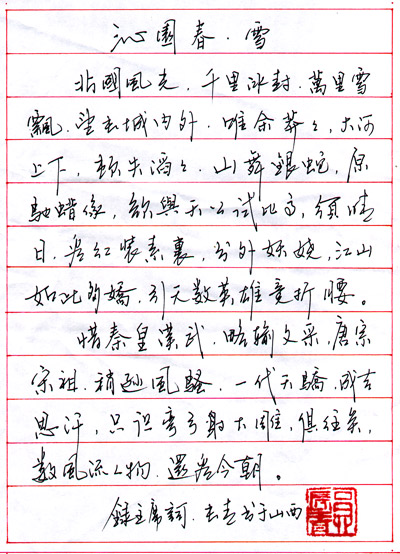 沁園春·雪
北國風光，千里冰封，萬里雪
飄．望长城内外．唯余莽々，大河
上下，顿失滔々．山舞銀蛇，原
馳蜡像，欲與天公試比高，須晴
日，看红装素裹，分外妖娆，江山
如此多嬌，引无数英雄竞折腰。
惜秦皇漢武，略输文采，唐宗
宋祖，稍逊風騷．一代天驕，成吉
思汗，只识弯弓射大雕，俱往矣，
数風流人物．還看今朝。
錄主席詞．书于山西